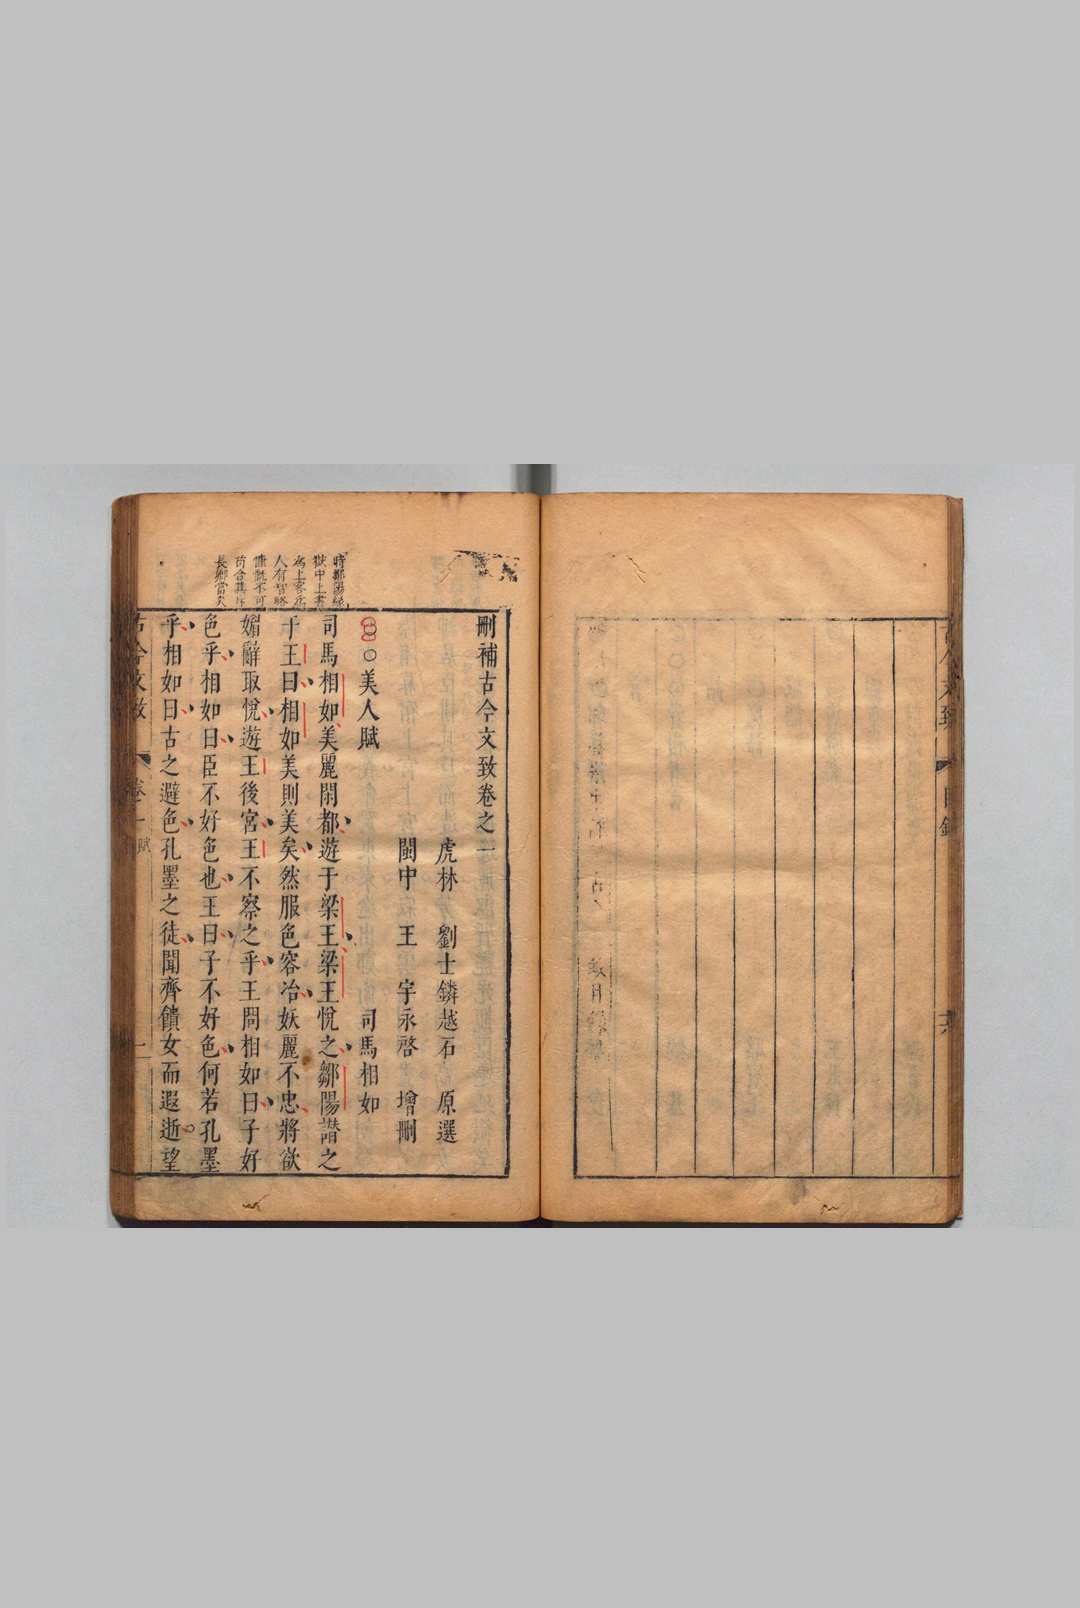 目錄
六
刪補古今文致卷之一
虎林 劉士鏻越石 原選
閩中 王宇永啓 增刪
○○美人賦 司馬相如
司馬相如美麗閑都遊于梁王梁王悅之鄒陽譖之
于王曰相如美則美矣然服色容冶妖麗不忠將欲
媚辭取悅遊王後宮王不察之乎王問相如曰子好
色乎相如曰臣不好色也王曰子不好色何若孔墨
乎相如曰古之避色孔墨之徒聞齊饋女而遐逝望
獄中上書
為上客
人有智略
慷慨不可
苟合
長卿當
古今文致
卷一
賦
一